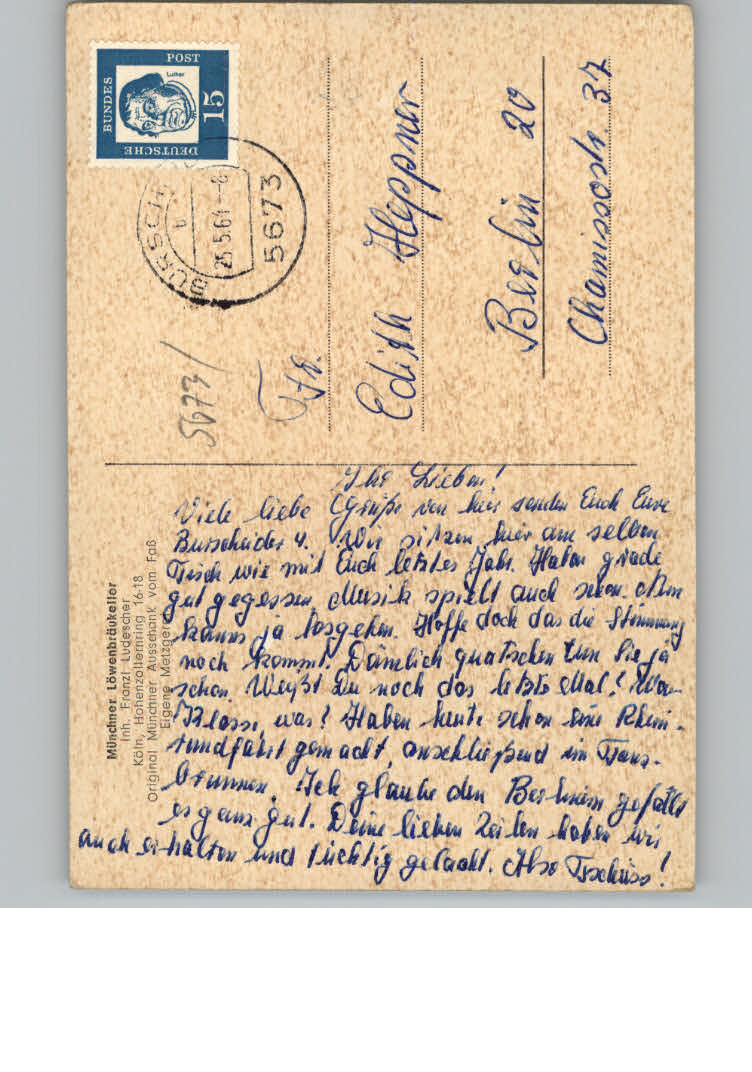 Ihr Lieben!
Viele liebe Grüße von hier senden Euch Eure
Burscheider 4. Wir sitzen hier am selben
Tisch wie mit Euch letztes Jahr. Haben grade
gut gegessen Musik spielt auch schon. Also
kanns ja losgehen. Hoffe doch das die Stimmung
noch kommt. Dämlich quatschen tun Sie ja
schon. Weißt Du noch das letzte Mal! War
Klasse, was? Haben heute schon eine Rhein-
rundfahrt gemacht, anschließend im Tanz-
brunnen. Ich glaube den Berlinern gefällt
es ganz gut. Deine lieben Zeilen haben wir
auch erhalten und tüchtig gelacht. Also Tschüss!
Münchner Löwenbräukeller
Inh. Franzl Ludescher
Köln, Hohenzollernring 16-18
Original Münchner Ausschank vom Faß
Eigene Metzgerei
5673/
Fr.
Edith Heppner
Berlin 20
Chamissostr. 37
DEUTSCHE BUNDES POST
Luther
15
BURSCH
25.5.64-8
5673